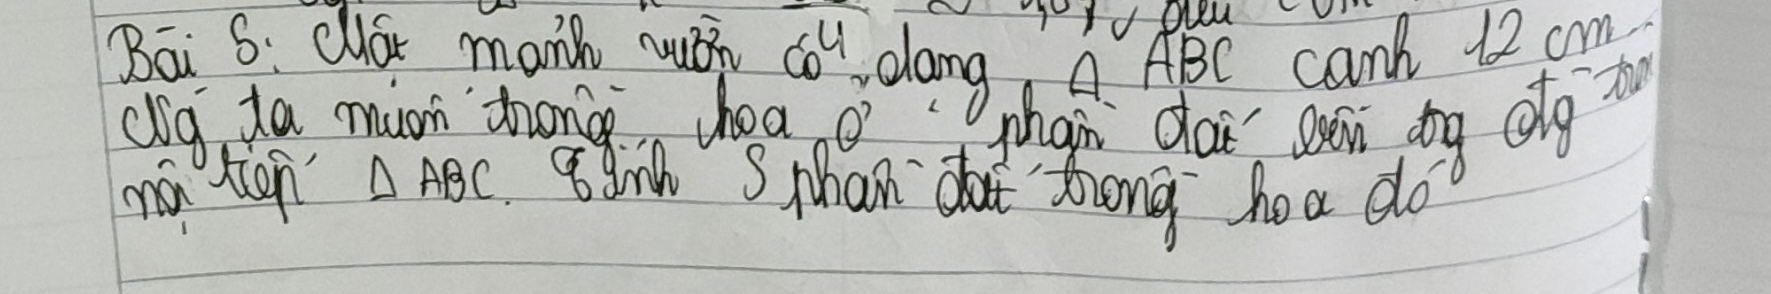 Bài 5: Một mảnh vườn có dạng Δ ABC cạnh 12 cm
Ng ta muốn trồng hoa ở phần đất bên tg đtg tròn
nội tiếp Δ ABC. Tính S phần đất trồng hoa đó